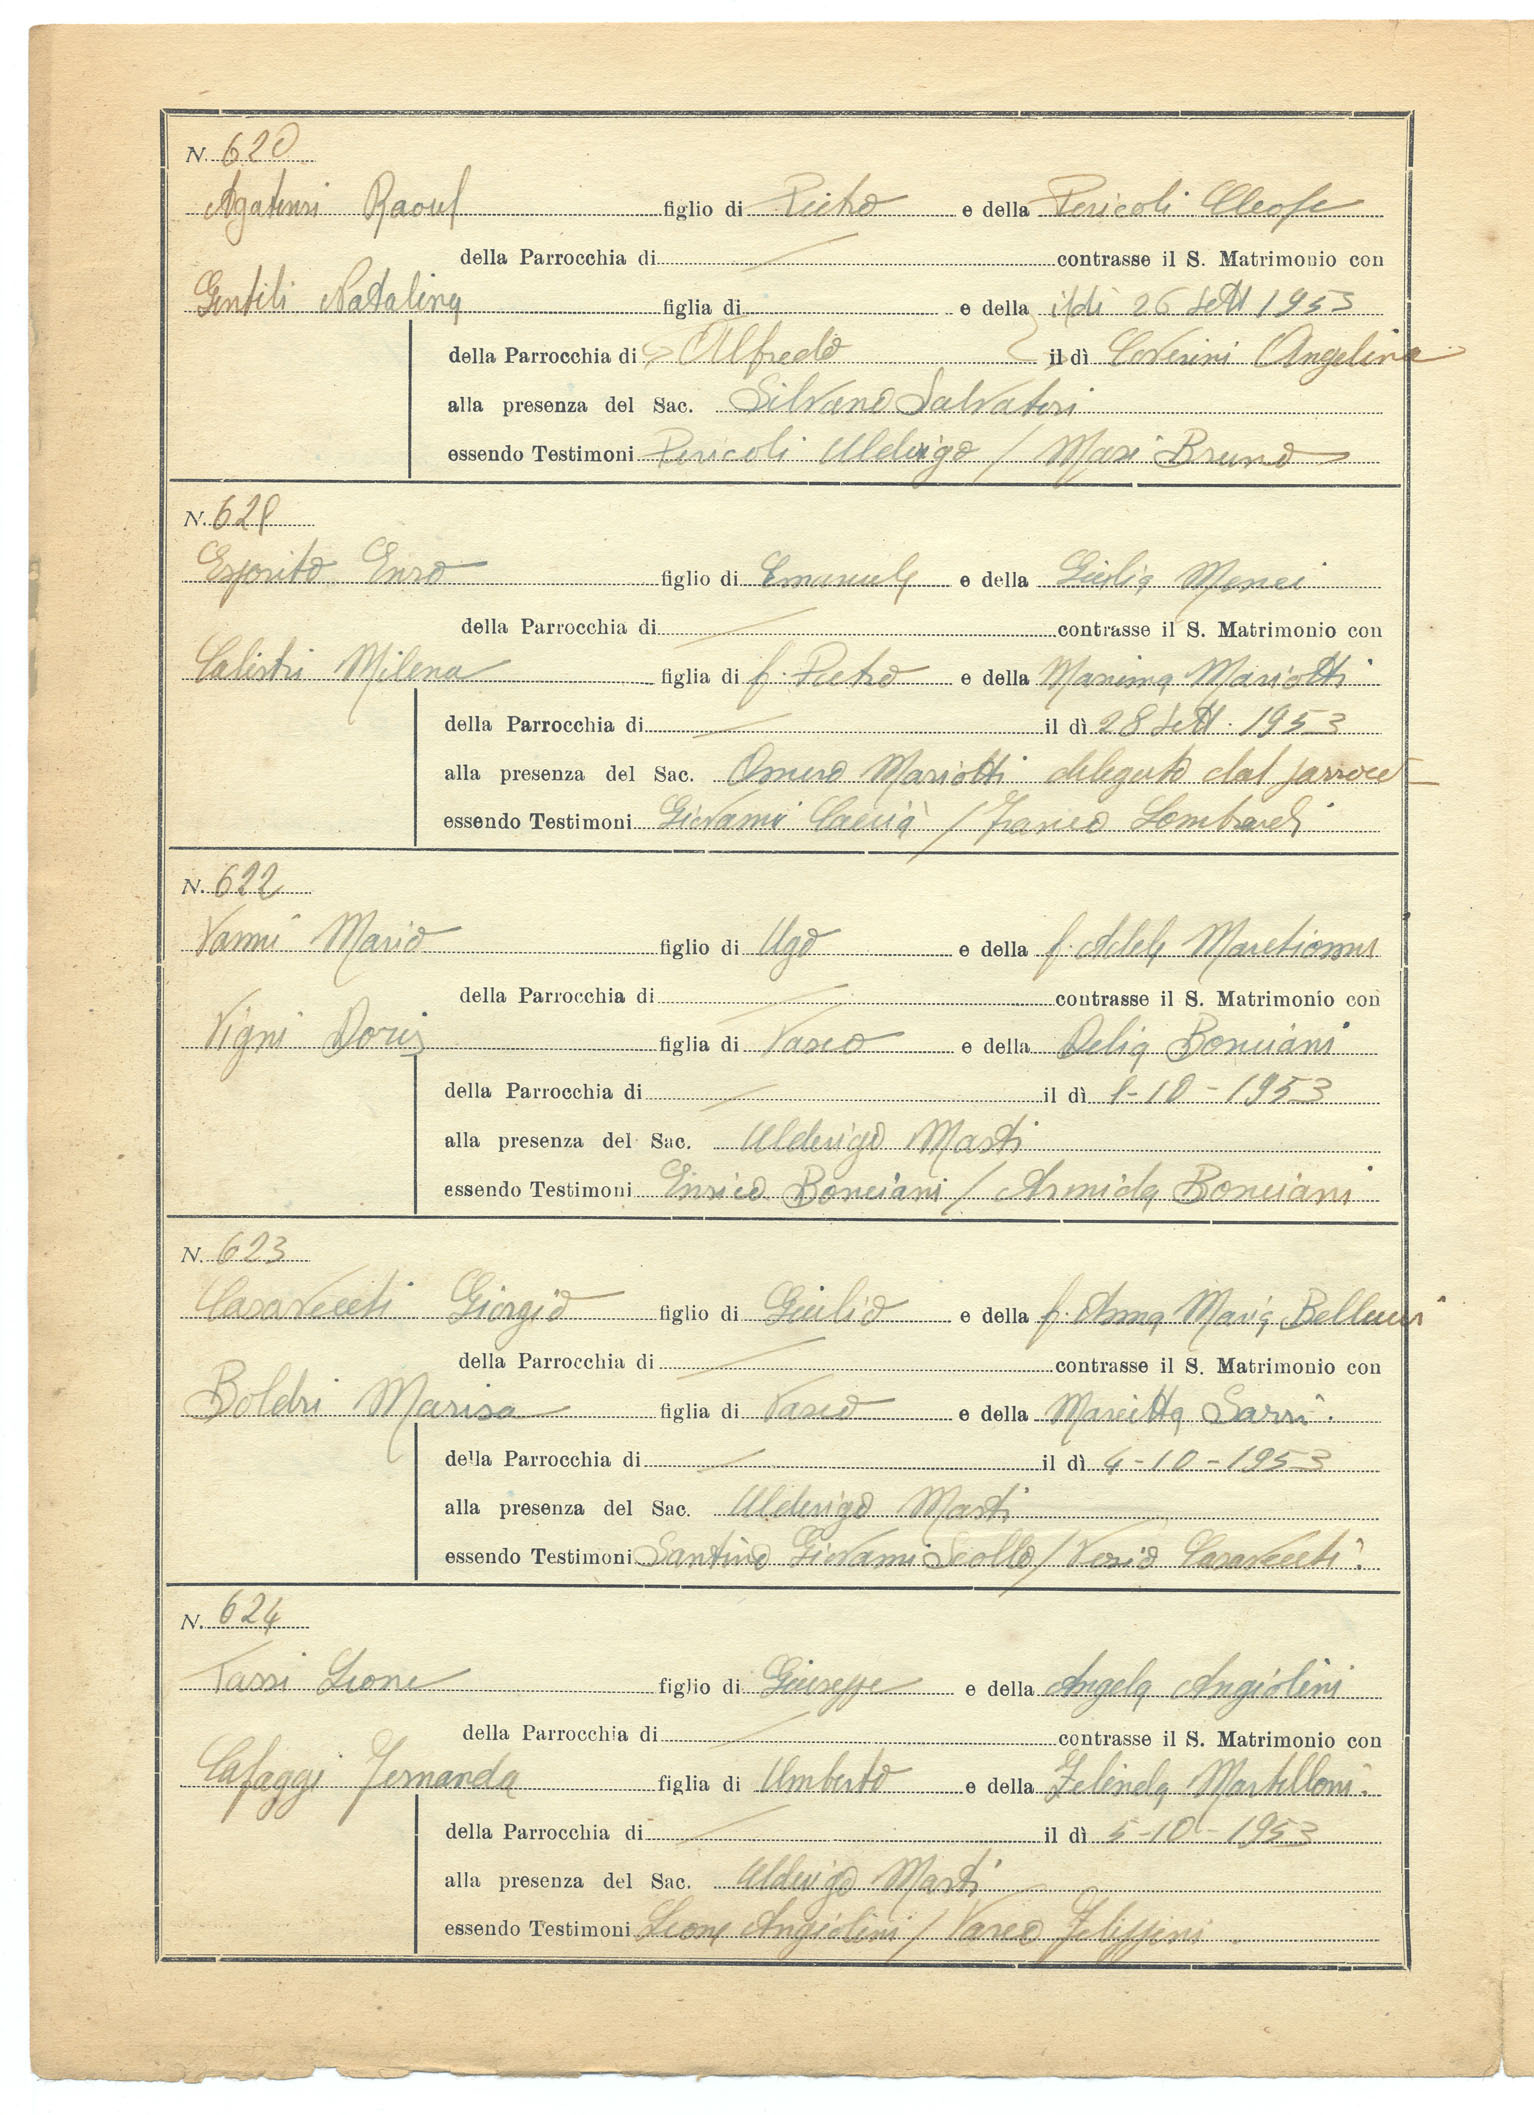 N. 620
Agatensi Raoul figlio di Pietro e della Pericoli Cleofe
della Parrocchia di contrasse il S. Matrimonio con
Gentili Natalina figlia di e della il dì 26 Sett 1953
della Parrocchia di Alfredo il dì Coverini Angelina
alla presenza del Sac. Silvano Salvatori
essendo Testimoni Pericoli Alderigo / Masi Bruno
N. 621
Esposito Enzo figlio di Emanuele e della Giulia Menci
della Parrocchia di contrasse il S. Matrimonio con
Calistri Milena figlia di f. Pietro e della Marima Mariotti
della Parrocchia di il dì 28 Sett. 1953
alla presenza del Sac. Omero Mariotti delegato dal parroco
essendo Testimoni Giovanni / Franco Lombardi
N. 622
Vanni Mario figlio di Ugo e della f. Adele Marchionni
della Parrocchia di contrasse il S. Matrimonio con
Vigni Doris figlia di Vasco e della Delia Bonciani
della Parrocchia di il dì 1-10-1953
alla presenza del Sac. Alderigo Masti
essendo Testimoni Enrico Bonciani / Armida Bonciani
N. 623
Casavecchi Giorgio figlio di Giulio e della f. Anna Maria Bellucci
della Parrocchia di contrasse il S. Matrimonio con
Boldri Marisa figlia di Vasco e della Marietta Sarri.
della Parrocchia di il dì 4-10-1953
alla presenza del Sac. Alderigo Masti
essendo Testimoni Santino Giovanni Scollo / Casavecchi.
N. 624
Tassi Leone figlio di Giuseppe e della Angela Angiolini
della Parrocchia di contrasse il S. Matrimonio con
Cafaggi Fernanda figlia di Umberto e della Zelinda Martelloni.
della Parrocchia di il dì 5-10-1953
alla presenza del Sac. Alderigo Masti
essendo Testimoni Leone Angiolini / Vasco Felippini.